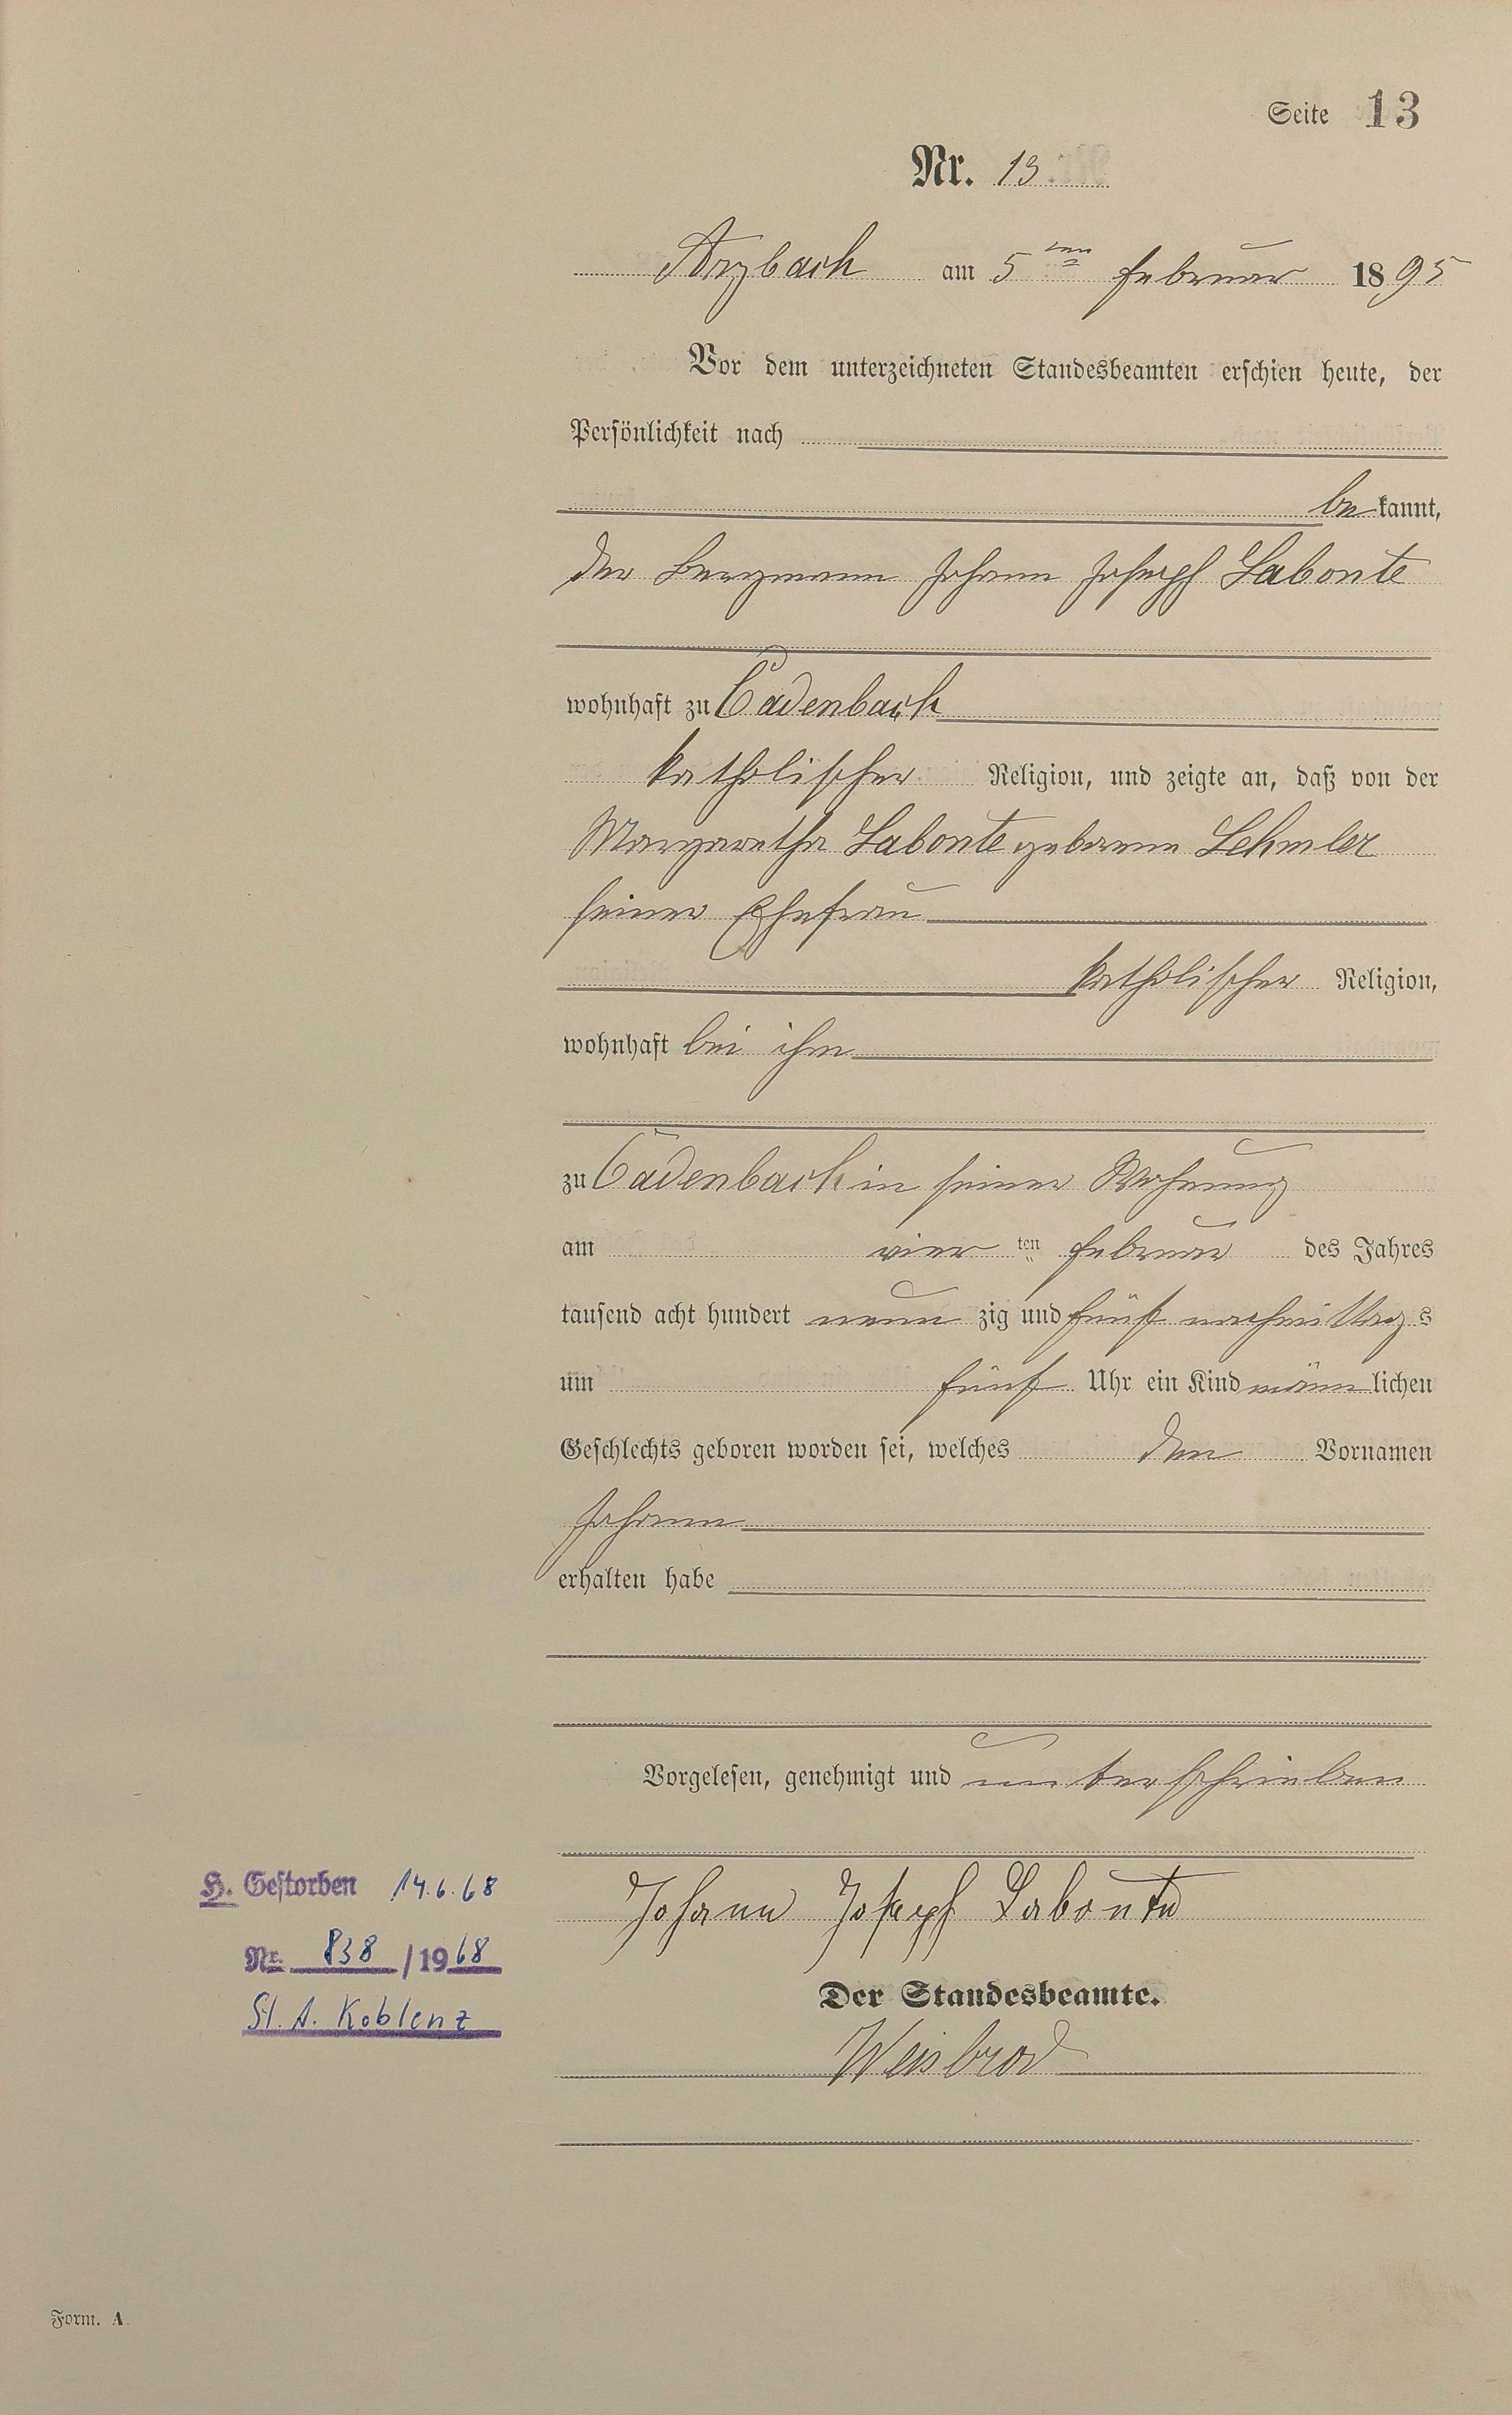 Seite 13
Nr. 13
Arzbach am 5ten Februar 1895
Vor dem unterzeichneten Standesbeamten erschien heute, der
Persönlichkeit nach
be kannt,
der Bergmann Johann Joseph Labonte
wohnhaft zu Cadenbach
katholischer Religion, und zeigte an, daß von der
Margaretha Labonte geborene Lehmler
seiner Ehefrau
katholischer Religion,
wohnhaft bei ihm
zu Cadenbach in seiner Wohnung
am vier ten Februar des Jahres
tausend acht hundert neun zig und fünf nachmittags
um fünf Uhr ein Kind männ lichen
Geschlechts geboren worden sei, welches den Vornamen
Johann
erhalten habe
Vorgelesen, genehmigt und unterschrieben
Johann Joseph Labonte
Der Standesbeamte.
Weisbrod
H. Gestorben 14.6.68
Nr. 838 / 1968
St. A. Koblenz
Form. A.